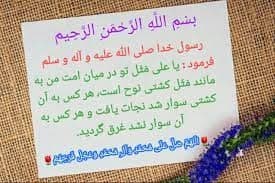 بِسْمِ اللَّهِ الرَّحْمَنِ الرَّحِيمِ
رسول خدا صلی الله علیه و آله و سلم
فرمود : یا علی مَثَل تو در میان امت من به
مانند مَثَل کشتی نوح است، هر کس به
کشتی سوار شد نجات یافت و هر کس به آن
آن سوار نشد غرق گردید.
اللهم صل علی محمد وآل محمد وعجل فرجهم